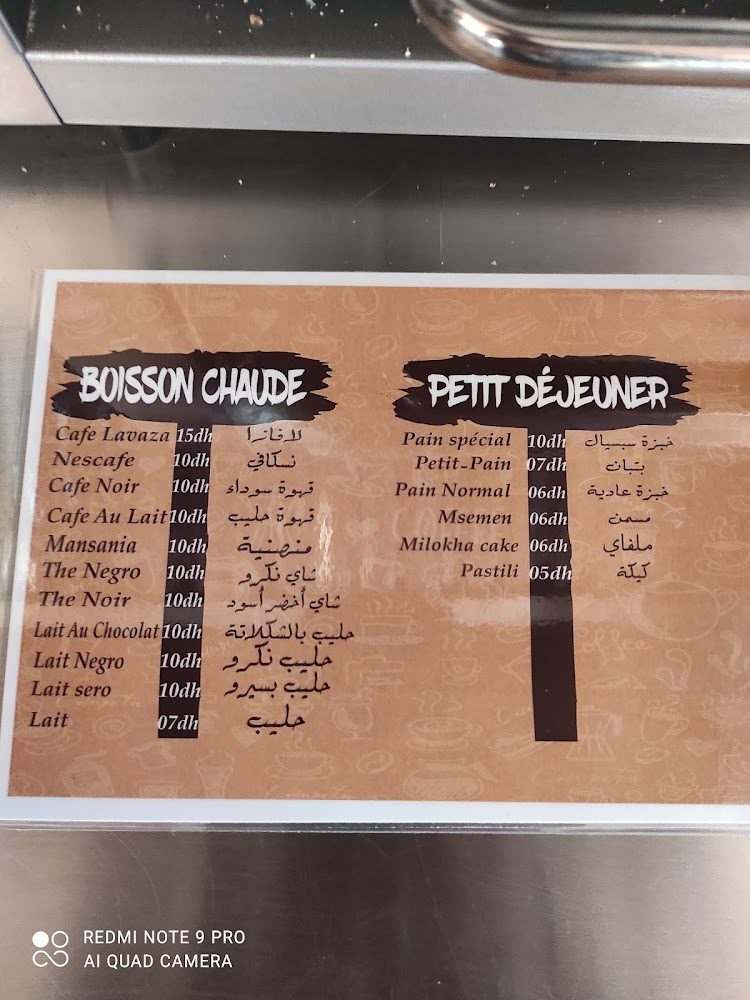 BOISSON CHAUDE
Cafe Lavaza 15dh لافازا
Nescafe 10dh نسكافي
Cafe Noir 10dh قهوة سوداء
Cafe Au Lait 10dh قهوة حليب
Mansania 10dh منصنية
The Negro 10dh شاي نكرو
The Noir 10dh شاي أخضر أسود
Lait Au Chocolat 10dh حليب بالشكلاتة
Lait Negro 10dh حليب نكرو
Lait sero 10dh حليب بسيرو
Lait 07dh حليب
PETIT DÉJEUNER
Pain spécial 10dh خبزة سبسيال
Petit-Pain 07dh بتبان
Pain Normal 06dh خبزة عادية
Msemen 06dh مسمن
Milokha cake 06dh ملفاي
Pastili 05dh كيكة
REDMI NOTE 9 PRO
AI QUAD CAMERA